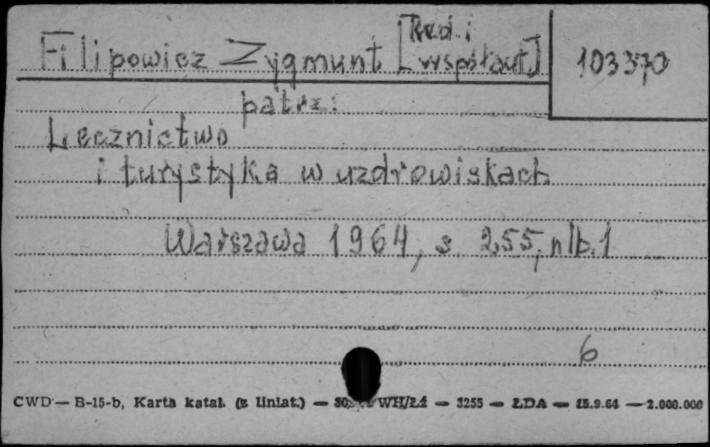 [Red. i
Filipowicz Zygmunt współaut.] 103370
patrz:
Lecznictwo
i turystyka w uzdrowiskach
Warszawa 1964, s. 255, nlb. 1
6
CWD — B-15-b, Karta katal. (z liniat.) — WH/Łż — 3255 — ŁDA — 15.9.64 — 2.000.000